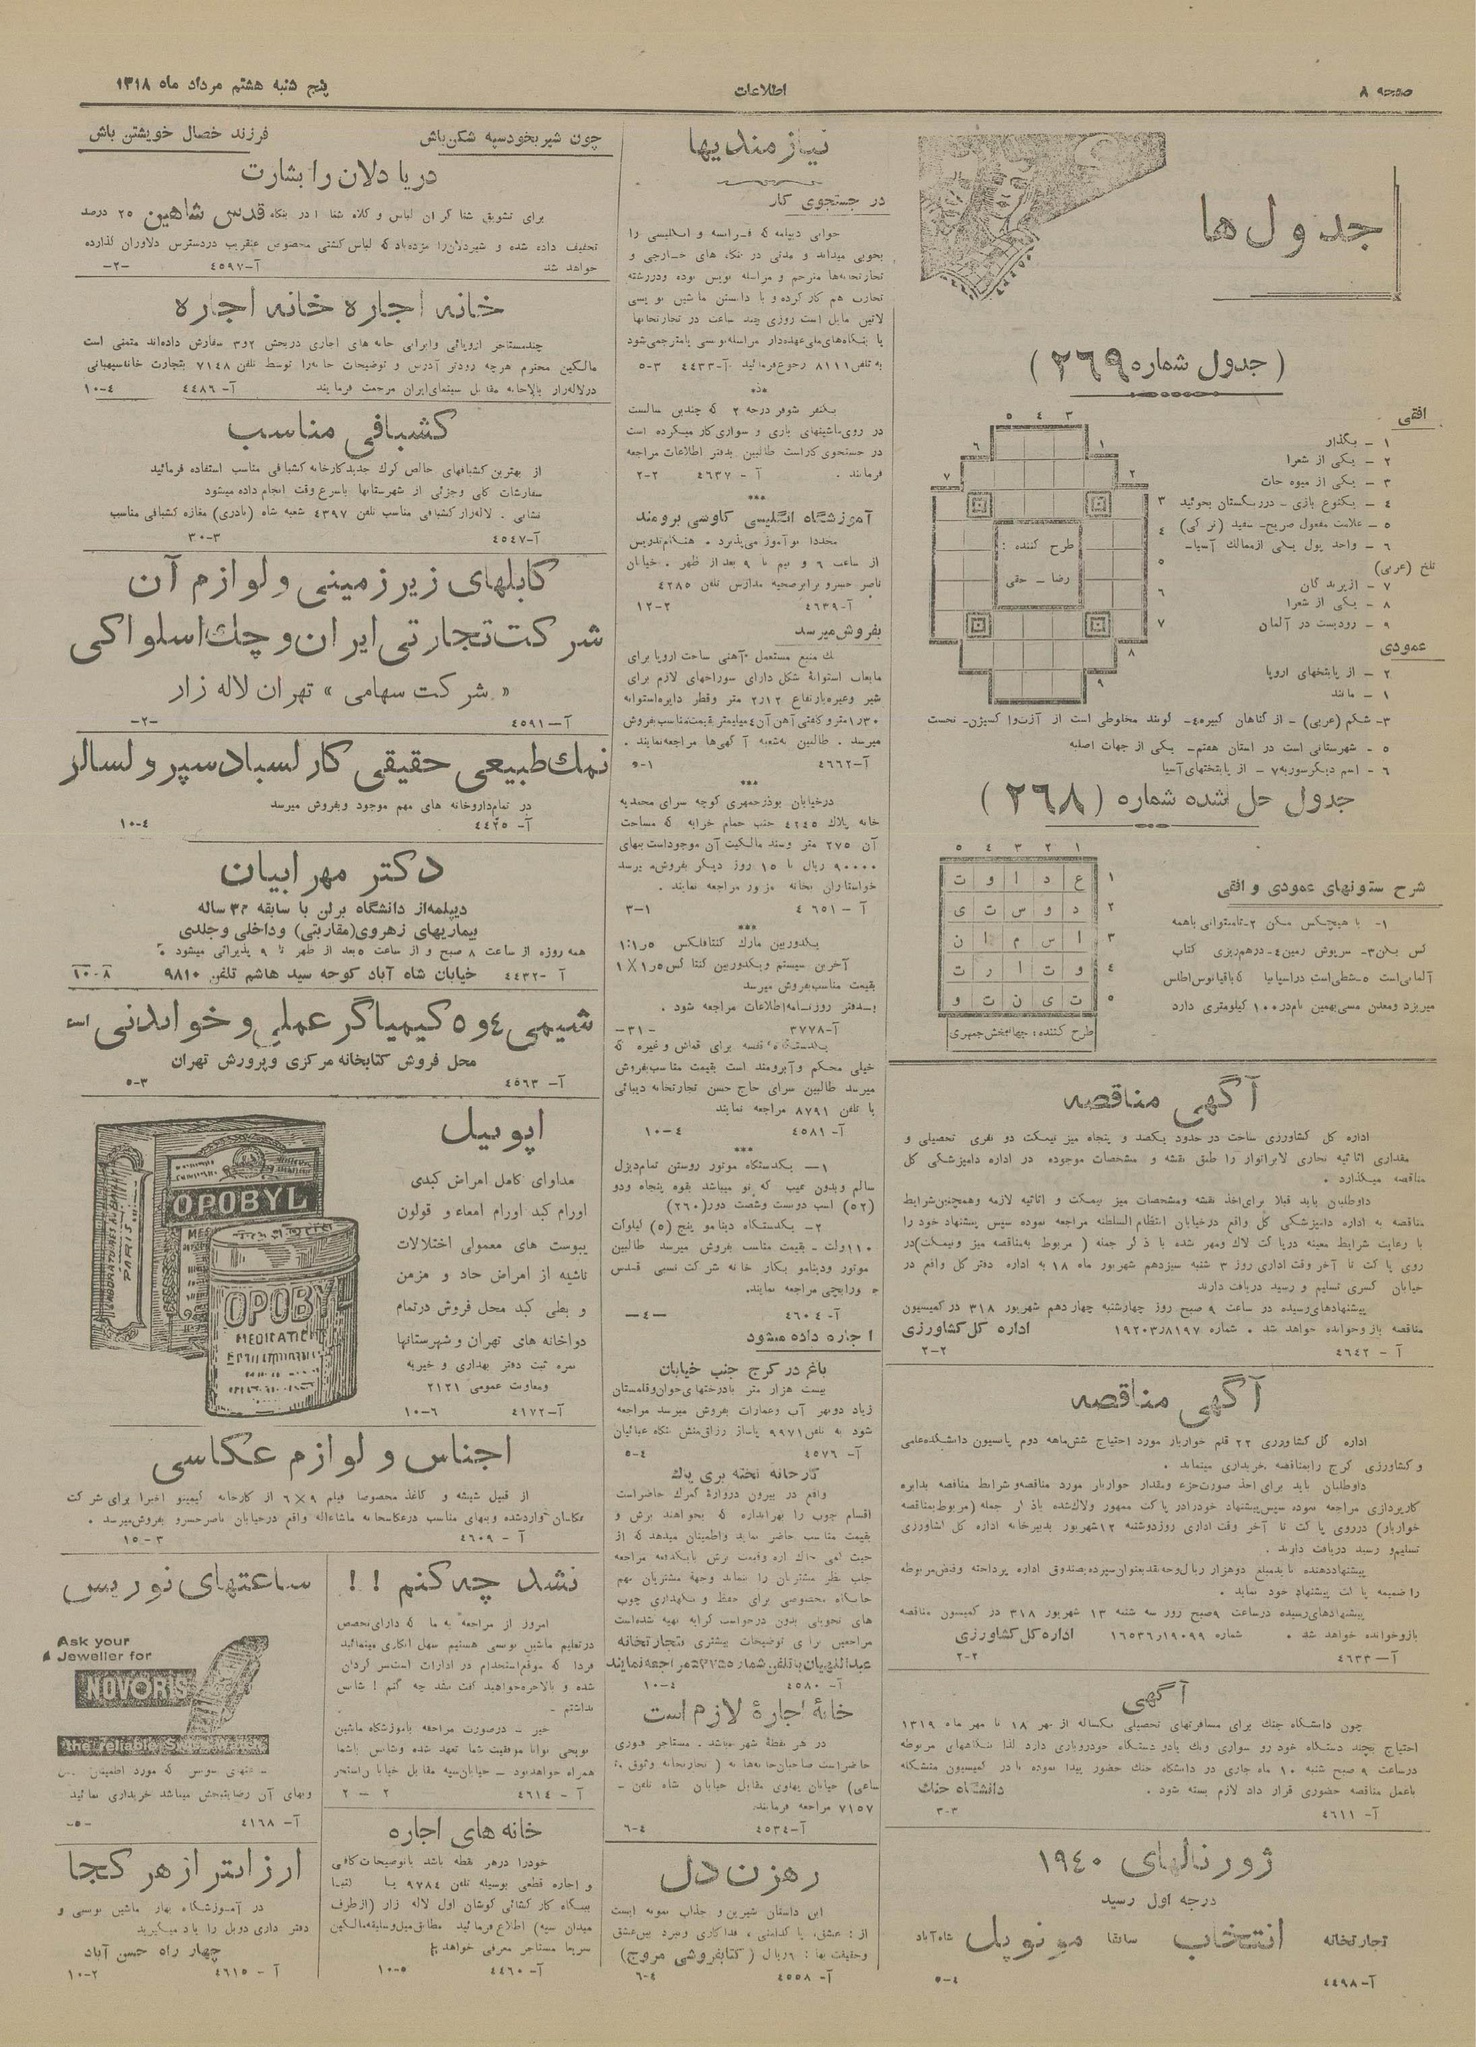 صفحه ۸
اطلاعات
پنج شنبه هشتم مرداد ماه ۱۳۱۸
جدول ها
( جدول شماره ۲۶۹ )
افقی
۱ - بگذار
۲ - یکی از شعرا
۳ - یکی از میوه جات
۴ - یکنوع بازی - در ریگستان بجوئید
۵ - علامت مفعول صریح - سفید (ترکی)
۶ - واحد پول یکی از ممالک آسیا -
تلخ (عربی)
۷ - از پرندگان
۸ - یکی از شعرا
۹ - رودیست در آلمان
عمودی
۲ - از پایتختهای اروپا
۱ - مانند
۳- شکم (عربی) - از گناهان کبیره ۴- گویند مخلوطی است از آزت و اکسیژن - نخست
۵ - شهرستانی است در استان هفتم - یکی از جهات اصلیه
۶ - اسم دیگر سوریه ۷ - از پایتختهای آسیا
طرح کننده :
رضا - حقی
جدول حل شده شماره ( ۲۶۸ )
۵ ۴ ۳ ۲ ۱
ع د ا و ت ۱
د و س ت ی ۲
ا س م ا ن ۳
و ت ا ر ت ۴
ت ی ن ت و ۵
شرح ستونهای عمودی و افقی
۱- با هیچکس مکن ۲- تا میتوانی با همه
کس بکن ۳- سرپوش زمین ۴- درهم ریزی کتاب
آلمانی است ۵- شطی است در اسپانیا که باقیانوس اطلس
میریزد و معدن مسی بهمین نام در ۱۰۰ کیلومتری دارد
آگهی مناقصه
اداره کل کشاورزی ساخت در حدود یکصد و پنجاه میز نیمکت دو نفری تحصیلی و
مقداری اثاثیه نجاری لابراتوار را طبق نقشه و مشخصات موجوده در اداره دامپزشکی کل
مناقصه میگذارد .
داوطلبان باید قبلا برای اخذ نقشه و مشخصات میز نیمکت و اثاثیه لازمه و همچنین شرایط
مناقصه به اداره دامپزشکی کل واقع در خیابان انتظام السلطنه مراجعه نموده سپس پیشنهاد خود را
با رعایت شرایط معینه در پاکت لاک و مهر شده با ذکر جمله ( مربوط به مناقصه میز و نیمکت) در
روی پاکت تا آخر وقت اداری روز ۳ شنبه سیزدهم شهریور ماه ۱۸ به اداره دفتر کل واقع در
خیابان کسری تسلیم و رسید دریافت دارند
پیشنهادهای رسیده در ساعت ۹ صبح روز چهارشنبه چهاردهم شهریور ۳۱۸ در کمیسیون
مناقصه باز و خوانده خواهد شد . شماره ۱۹۲۰۳٫۸۱۹۷ اداره کل کشاورزی
آ - ۴۶۴۲ ۲-۲
آگهی مناقصه
اداره کل کشاورزی ۲۲ قلم خواربار مورد احتیاج شش ماهه دوم پانسیون دانشکده علمی
و کشاورزی کرج را بمناقصه خریداری مینماید .
داوطلبان باید برای اخذ صورت جزء و مقدار خواربار مورد مناقصه و شرایط مناقصه بدایره
کارپردازی مراجعه نموده سپس پیشنهاد خود را در پاکت ممهور و لاک شده با ذکر جمله (مربوط بمناقصه
خواربار) در روی پاکت تا آخر وقت اداری روز دوشنبه ۱۲ شهریور بدبیرخانه اداره کل کشاورزی
تسلیم و رسید دریافت دارند .
پیشنهاددهنده باید مبلغ دو هزار ریال وجه نقد بعنوان سپرده بصندوق اداره پرداخته و قبض مربوطه
را ضمیمه پاکت پیشنهاد خود نماید .
پیشنهادهای رسیده در ساعت ۹ صبح روز سه شنبه ۱۳ شهریور ۳۱۸ در کمیسیون مناقصه
باز و خوانده خواهد شد . شماره ۱۶۵۳۶٫۱۹۰۹۹ اداره کل کشاورزی
آ- ۴۶۳۳ ۲-۲
آگهی
چون دانشگاه جنگ برای مسافرتهای تحصیلی یکساله از مهر ۱۸ تا مهر ماه ۱۳۱۹
احتیاج بچند دستگاه خودرو سواری و یک یا دو دستگاه خودروباری دارد لذا بنگاههای مربوطه
در ساعت ۹ صبح شنبه ۱۰ ماه جاری در دانشگاه جنگ حضور پیدا نموده تا در کمیسیون متشکله
باعمل مناقصه حضوری قرار داد لازم بسته شود . دانشگاه جنگ
آ- ۴۶۱۱ ۳-۳
ژورنالهای ۱۹۴۰
درجه اول رسید
تجارتخانه انتخاب سابقا مونوپل شاه آباد
آ- ۴۴۹۸ ۵-۴
نیازمندیها
در جستجوی کار
جوانی دیپلمه که فرانسه و انگلیسی را
بخوبی میداند و مدتی در بنگاه های خارجی و
تجارتخانه‌ها مترجم و مراسله نویس بوده و در رشته
تجارت هم کار کرده و با دانستن ماشین نویسی
لاتین مایل است روزی چند ساعت در تجارتخانها
یا بنگاه‌های ملی عهده‌دار مراسله نویسی یا مترجمی شود
به تلفن ۸۱۱۱ رجوع فرمائید آ-۴۴۳۳ ۵-۳
یکنفر شوفر درجه ۲ که چندین سالست
در روی ماشینهای باری و سواری کار میکرده است
در جستجوی کار است طالبین بدفتر اطلاعات مراجعه
فرمایند . آ - ۴۶۳۷ ۲-۲
آموزشگاه انگلیسی کاوسی برومند
مجددا نوآموز می‌پذیرد . هنگام تدریس
از ساعت ۶ و نیم تا ۹ بعد از ظهر . خیابان
ناصر خسرو برابر صحیه مدارس تلفن ۴۲۸۵
آ-۴۶۳۹ ۱۲-۲
بفروش میرسد
یک منبع مستعمل آهنی ساخت اروپا برای
مایعات استوانه شکل دارای سوراخهای لازم برای
شیر و غیره بارتفاع ۲٫۱۲ متر و قطر دایره استوانه
۱٫۳۰ متر و کلفتی آهن آن ۴ میلیمتر بقیمت مناسب بفروش
میرسد . طالبین به شعبه آگهی‌ها مراجعه نمایند .
آ-۴۶۶۲ ۵-۱
در خیابان بوذرجمهری کوچه سرای محمدیه
خانه پلاک ۴۲۴۵ جنب حمام خرابه که مساحت
آن ۲۷۵ متر و سند مالکیت آن موجود است ببهای
۹۰۰۰۰ ریال تا ۱۵ روز دیگر بفروش میرسد
خواستاران بخانه مزبور مراجعه نمایند .
آ - ۴۶۵۱ ۳-۱
یکدوربین مارک کنتافلکس ۱:۱٫۵
آخرین سیستم و یکدوربین کنتاکس ۱٫۵×۱
بقیمت مناسب بفروش میرسد
بدفتر روزنامه اطلاعات مراجعه شود .
آ-۳۷۷۸ -۳۱-
یکدستگاه قفسه برای قماش و غیره که
خیلی محکم و آبرومند است بقیمت مناسب بفروش
میرسد طالبین سرای حاج حسن تجارتخانه دیبائی
یا تلفن ۸۷۹۱ مراجعه نمایند
آ- ۴۵۸۱ ۱۰-۴
۱- یکدستگاه موتور روستن تمام دیزل
سالم و بدون عیب که نو میباشد بقوه پنجاه و دو
(۵۲) اسب دویست و شصت دور (۲۶۰)
۲- یکدستگاه دینامو پنج (۵) کیلوات
۱۱۰ ولت - بقیمت مناسب بفروش میرسد طالبین
موتور و دینامو بکارخانه شرکت نسبی قدس
و ورابچی مراجعه نمایند.
آ- ۴۶۰۴ -۴-
اجاره داده میشود
باغ در کرج جنب خیابان
بیست هزار متر با درختهای جوان و قلمستان
زیاد دو نهر آب و عمارات بفروش میرسد مراجعه
شود به تلفن ۹۹۷۱ پاساژ رزاق منش بنگاه عبائیان
آ- ۴۵۷۶ ۵-۴
کارخانه تخته بری پاک
واقع در بیرون دروازه گمرک حاضر است
اقسام چوب را بهر اندازه که بخواهند برش و
بقیمت مناسب حاضر نماید و اطمینان میدهد که از
حیث کمی خاک اره و قیمت برش با یکدفعه مراجعه
جلب نظر مشتریان را بنماید وجهة مشتریان مهم
جایگاه مخصوصی برای حفظ و نگهداری چوب
های تحویلی بدون درخواست کرایه تهیه شده است
مراجعین برای توضیحات بیشتری بتجارتخانه
آ- ۴۵۸۰ ۱۰-۴
خانه اجاره لازم است
در هر نقطه شهر میباشد . مستاجر فوری
حاضر است صاحبان خانه‌ها به ( تجارتخانه وثوق
ساعی) خیابان پهلوی مقابل خیابان شاه تلفن -
۷۱۵۷ مراجعه فرمایند
آ-۴۵۳۴ ۶-۴
رهزن دل
این داستان شیرین و جذاب نمونه ایست
از : عشق، پاکدامنی ، فداکاری و نبرد بین عشق
و حقیقت بها : ۶ ریال (کتابفروشی مروج)
آ- ۴۵۵۸ ۶-۴
چون شیر بخود سپه شکن باش فرزند خصال خویشتن باش
دریا دلان را بشارت
برای تشویق شناگران لباس و کلاه شنا در بنگاه قدس شاهین ۲۵ درصد
تخفیف داده شده و شیردلان را مژده باد که لباس کشتی مخصوص عنقریب در دسترس دلاوران گذارده
خواهد شد آ-۴۵۹۷ -۲-
خانه اجاره خانه اجاره
چند مستاجر اروپائی و ایرانی خانه های اجاری در بخش ۲ و ۳ سفارش داده‌اند متمنی است
مالکین محترم هرچه زودتر آدرس و توضیحات خانه را توسط تلفن ۷۱۴۸ بتجارتخانه سیهبانی
در لاله‌زار بالاخانه مقابل سینمای ایران مرحمت فرمایند آ- ۴۴۸۶ ۱۰-۴
کشبافی مناسب
از بهترین کشبافهای خالص کرک جدید کارخانه کشبافی مناسب استفاده فرمائید
سفارشات کلی و جزئی از شهرستانها باسرع وقت انجام داده میشود
نشانی . لاله‌زار کشبافی مناسب تلفن ۴۳۹۷ شعبه شاه (نادری) مغازه کشبافی مناسب
آ-۴۵۴۷ ۳۰-۳
کابلهای زیرزمینی و لوازم آن
شرکت تجارتی ایران و چک اسلواکی
« شرکت سهامی » تهران لاله زار
آ- ۴۵۹۱ -۲-
نمک طبیعی حقیقی کارلسباد سپرولسالز
در تمام داروخانه های مهم موجود و بفروش میرسد
آ- ۴۴۲۵ ۱۰-۴
دکتر مهرابیان
دیپلمه از دانشگاه برلن با سابقه ۳۰ ساله
بیماریهای زهروی (مقاربتی) و داخلی و جلدی
همه روزه از ساعت ۸ صبح و از ساعت ۵ بعد از ظهر تا ۹ پذیرائی میشود .
آ - ۴۴۳۲ خیابان شاه آباد کوچه سید هاشم تلفن ۹۸۱۰ ۱۰-۸
شیمی ۴ و ۵ کیمیاگر عملی و خواندنی است
محل فروش کتابخانه مرکزی و پرورش تهران
آ- ۴۵۶۳ ۵-۳
اپوبیل
مداوای کامل امراض کبدی
اورام کبد اورام امعاء و قولون
یبوست های معمولی اختلالات
ناشیه از امراض حاد و مزمن
و بطی کبد محل فروش در تمام
دواخانه های تهران و شهرستانها
نمره ثبت دفتر بهداری و خیریه
ومعاونت عمومی ۲۱۲۱
آ-۴۱۷۲ ۱۰-۶
OPOBYL
OPOBYL
اجناس و لوازم عکاسی
از قبیل شیشه و کاغذ مخصوصا فیلم ۹×۶ از کارخانه کیمینو اخیرا برای شرکت
عکاسان وارد شده و ببهای مناسب در عکاسخانه ماشاءاله واقع در خیابان ناصر خسرو بفروش میرسد .
آ - ۴۶۰۹ ۱۵-۳
نشد چه کنم !!
امروز از مراجعه بما که دارای تخصص
در تعلیم ماشین نویسی هستیم سهل انگاری مینمائید
فردا که موقع استخدام در ادارات است سرگردان
شده و بالاخره خواهید گفت نشد چه کنم ! شانس
نداشتم .
خیر - در صورت مراجعه بآموزشگاه ماشین
نویسی توانا موفقیت شما تعهد شده و شانس باشما
همراه خواهد بود -
آ - ۴۶۱۴ ۲-۲
خانه های اجاره
خود را در هر نقطه باشد با توضیحات کافی
و اجاره قطعی بوسیله تلفن ۹۷۸۴ یا کتبا
ببنگاه کارگشائی کوشان اول لاله زار (از طرف
میدان سپه) اطلاع فرمائید مطابق میل و سابقه مالکین
سریعا مستاجر معرفی خواهد شد
آ- ۴۴۶۰ ۱۰-۵
ساعتهای نوریس
Ask your
Jeweller for
NOVORIS
the reliable Swiss Watch
ساعتهای سویس که مورد اطمینان
وبهای آن رضایتبخش میباشد خریداری نمائید
آ- ۴۱۶۸ -۵-
ارزانتر از هر کجا
در آموزشگاه بهار ماشین نویسی و
دفتر داری دوبل را یاد میگیرید
چهار راه حسن آباد
آ - ۴۶۱۵ ۱۰-۲